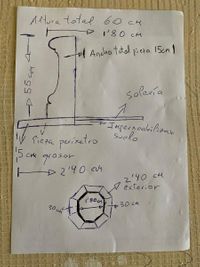 Altura total 60 cm
1'80 cm
Ancho total pieza 15cm
55 cm
Solería
Impermeabilizar
suelo
Pieza perímetro
5 cm grosor
2'40 cm
2'40 cm
exterior
1'80 cm
30 cm
30 cm